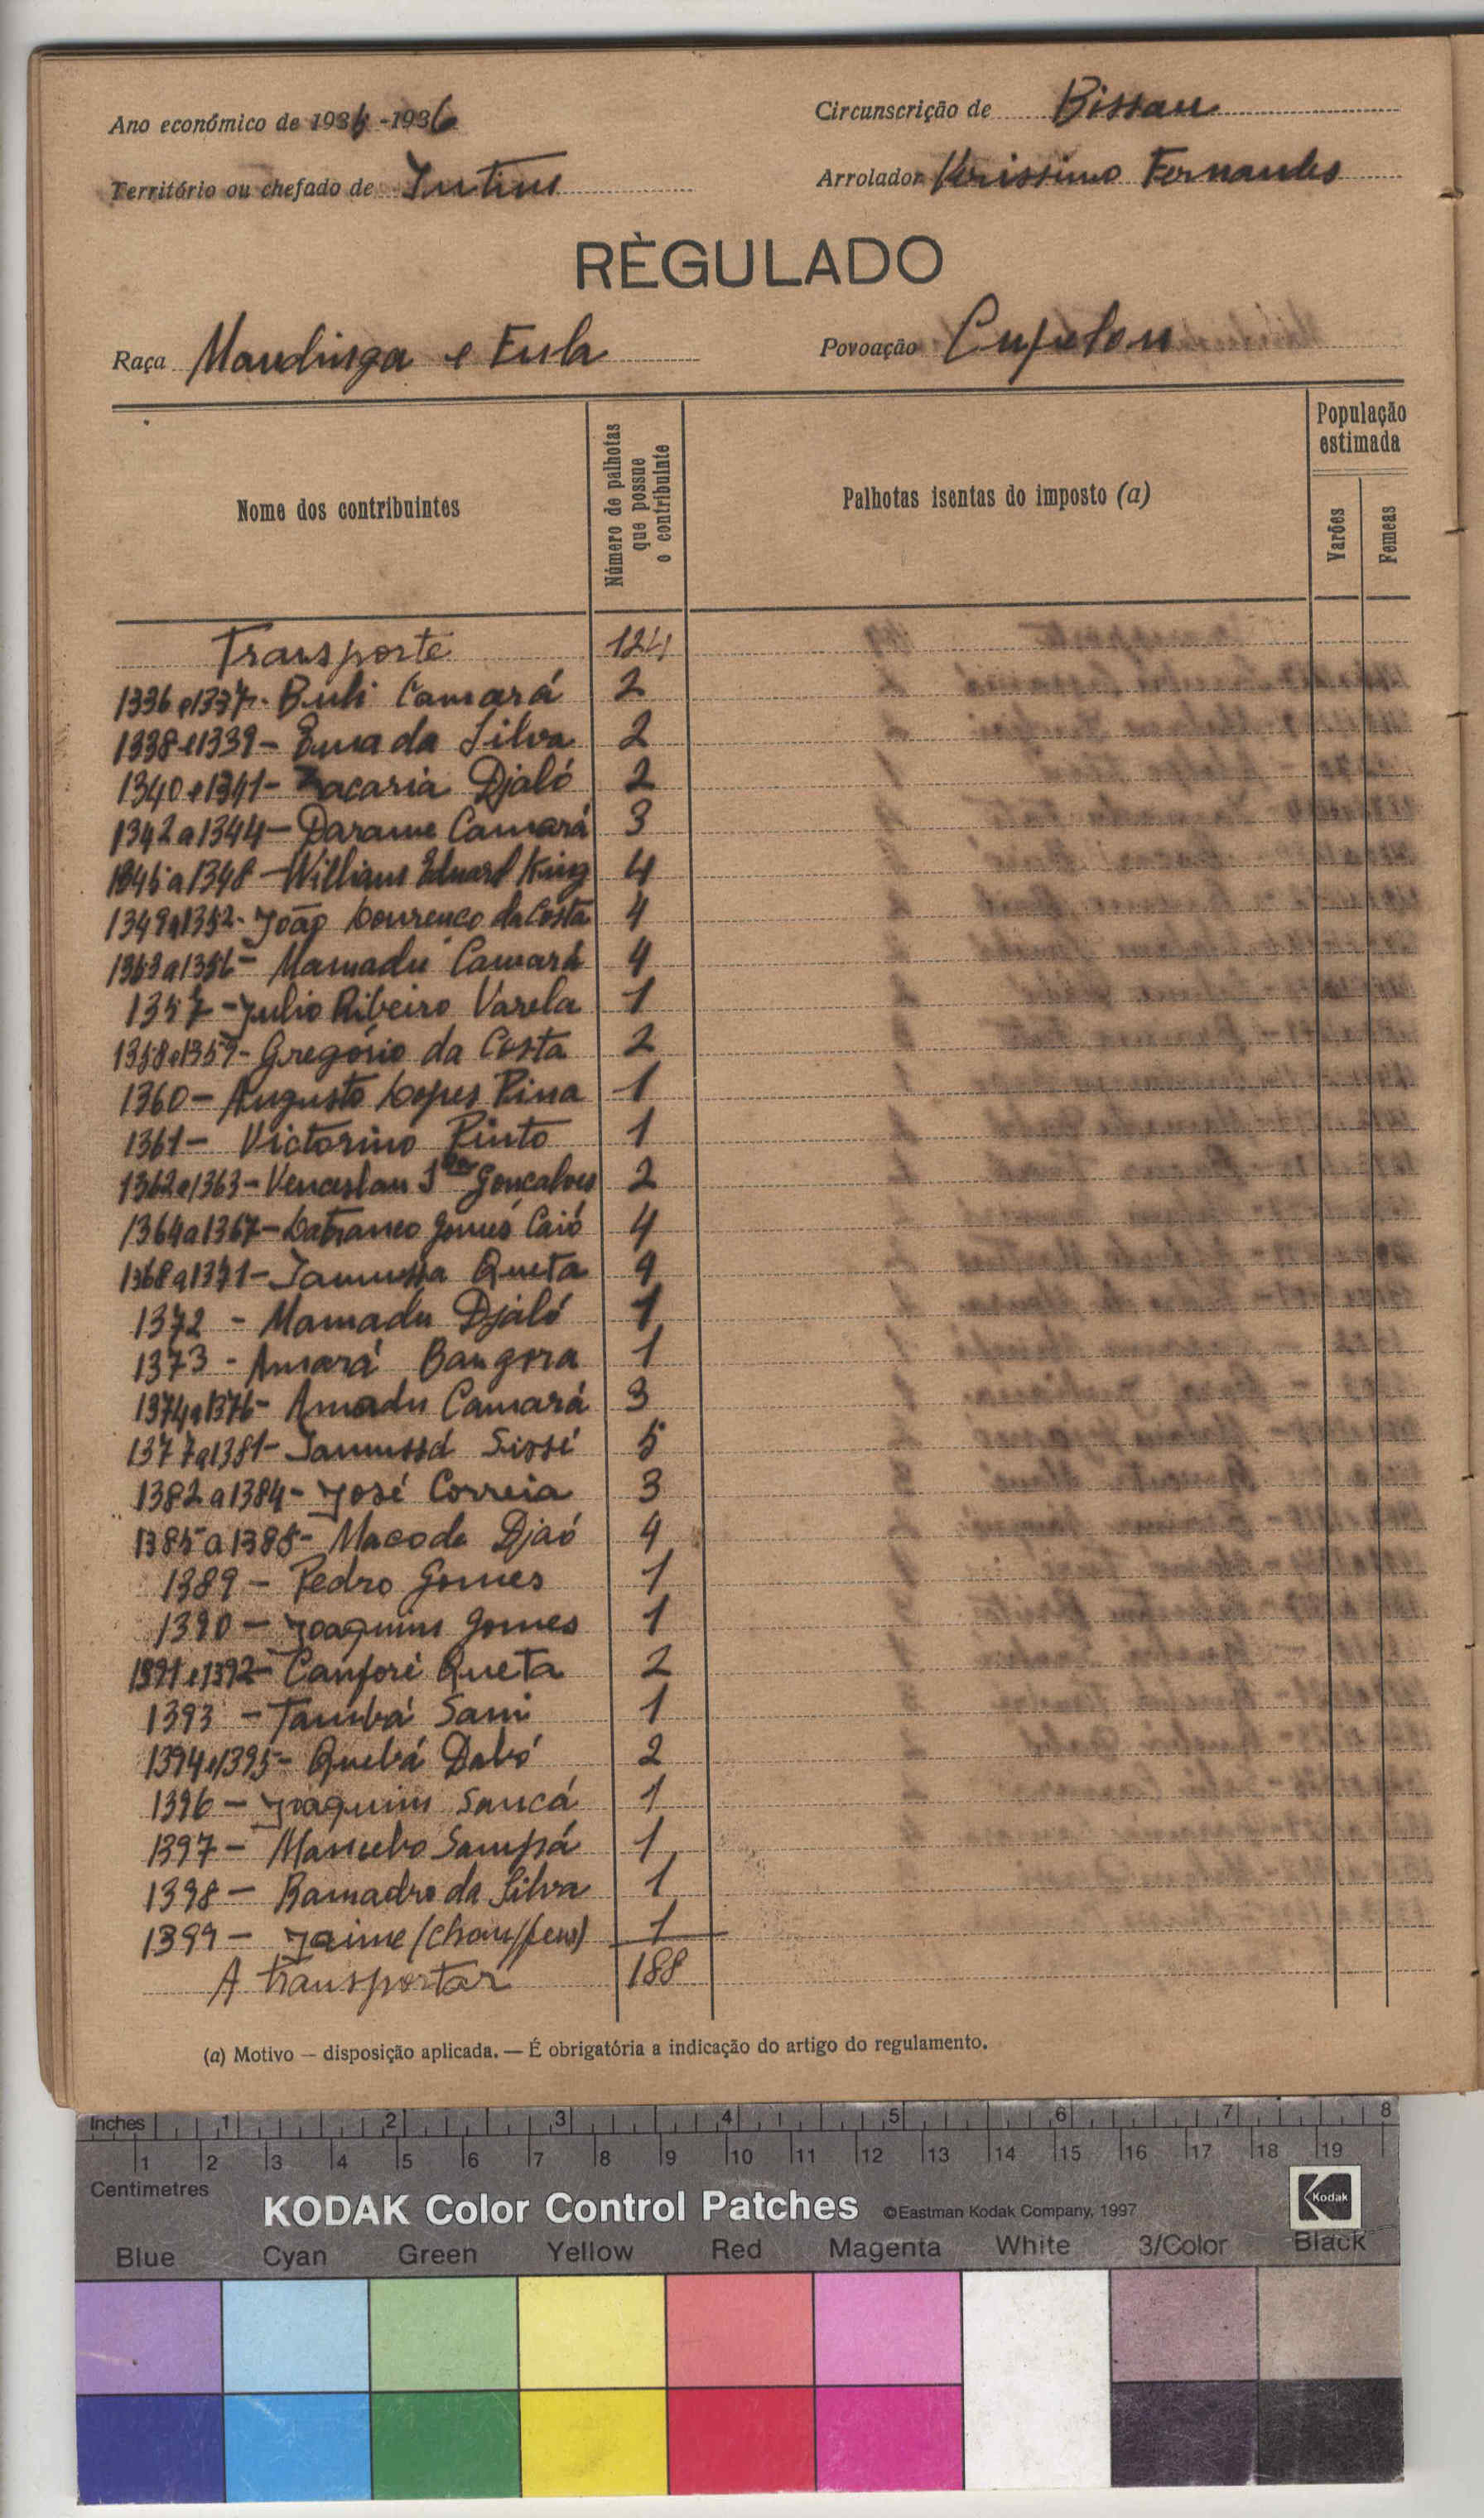 Ano económico de 1935-1936 Circunscrição de Bissau
Território ou chefado de Intim Arrolador Verissimo Fernandes
RÈGULADO
Raça Mandinga e Fula Povoação Cupelon
Nome dos contribuintes
Número de palhotas que possue o contribuinte
Palhotas isentas do imposto (a)
População estimada
Varões
Femeas
Transporte 124
1336 e 1337- Buli Camará 2
1338 e 1339- Ema da Silva 2
1340 e 1341- Zacaria Djaló 2
1342 a 1344- Darame Camará 3
1345 a 1348- Williams Eduard King 4
1349 a 1352- João Lourenco da Costa 4
1353 a 1356- Mamadú Camará 4
1357- Julio Ribeiro Varela 1
1358 e 1359- Gregório da Costa 2
1360- Augusto Lopes Pina 1
1361- Victorino Pinto 1
1362 e 1363- Venceslau Gonçalves 2
1364 a 1367- Gomes Caió 4
1368 a 1371- Iamussa Queta 4
1372- Mamadu Djaló 1
1373- Amará Bangora 1
1374 a 1376- Amadu Camará 3
1377 a 1381- Iamussá Sissé 5
1382 a 1384- José Correia 3
1385 a 1388- Macode Djaó 4
1389- Pedro Gomes 1
1390- Joaquim Gomes 1
1391 e 1392- Canforé Queta 2
1393- Tambá Sani 1
1394 e 1395- Quebá Dabó 2
1396- Joaquim Sancá 1
1397- Mancebo Sampá 1
1398- Ramadro da Silva 1
1399- Jaime (chauffeur) 1
A transportar 188
(a) Motivo — disposição aplicada. — É obrigatória a indicação do artigo do regulamento.
Inches 1 2 3 4 5 6 7 8
1 2 3 4 5 6 7 8 9 10 11 12 13 14 15 16 17 18 19
Centimetres
KODAK Color Control Patches ©Eastman Kodak Company, 1997 Kodak
Blue Cyan Green Yellow Red Magenta White 3/Color Black